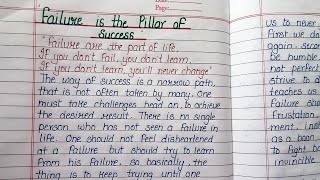 Date
Page
Failure is the Pillar of
Success
"Failure are the part of life,
If you don't fail, you don't learn,
If you don't learn, you'll never change"
The way of success is a narrow path,
that is not often taken by many. One
must take challenges head on, to achieve
the desired result. There is no single
person who has not seen a failure in
life. One should not feel disheartened
at a failure but should try to learn
from his failure, so basically, the
thing is to keep trying until one
us to never
First we do
again, secon
be humble,
not perfect
strive to d
teaches us
Failure sho
Frustation,
ment, inst
as a boon
to fight b
invincible